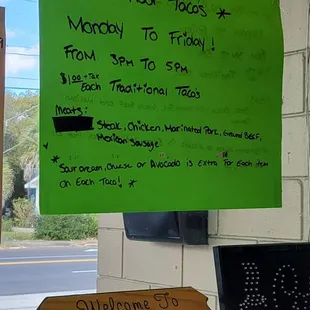 Hour Tacos *
Monday To Friday!
From 3pm to 5pm
$1.00 + Tax
Each Traditional Tacos
Meats:
Steak, Chicken, Marinated Pork, Ground Beef,
Mexican Sausage
* Sour cream, Cheese or Avocado is Extra For Each item
on Each Taco! *
Welcome To